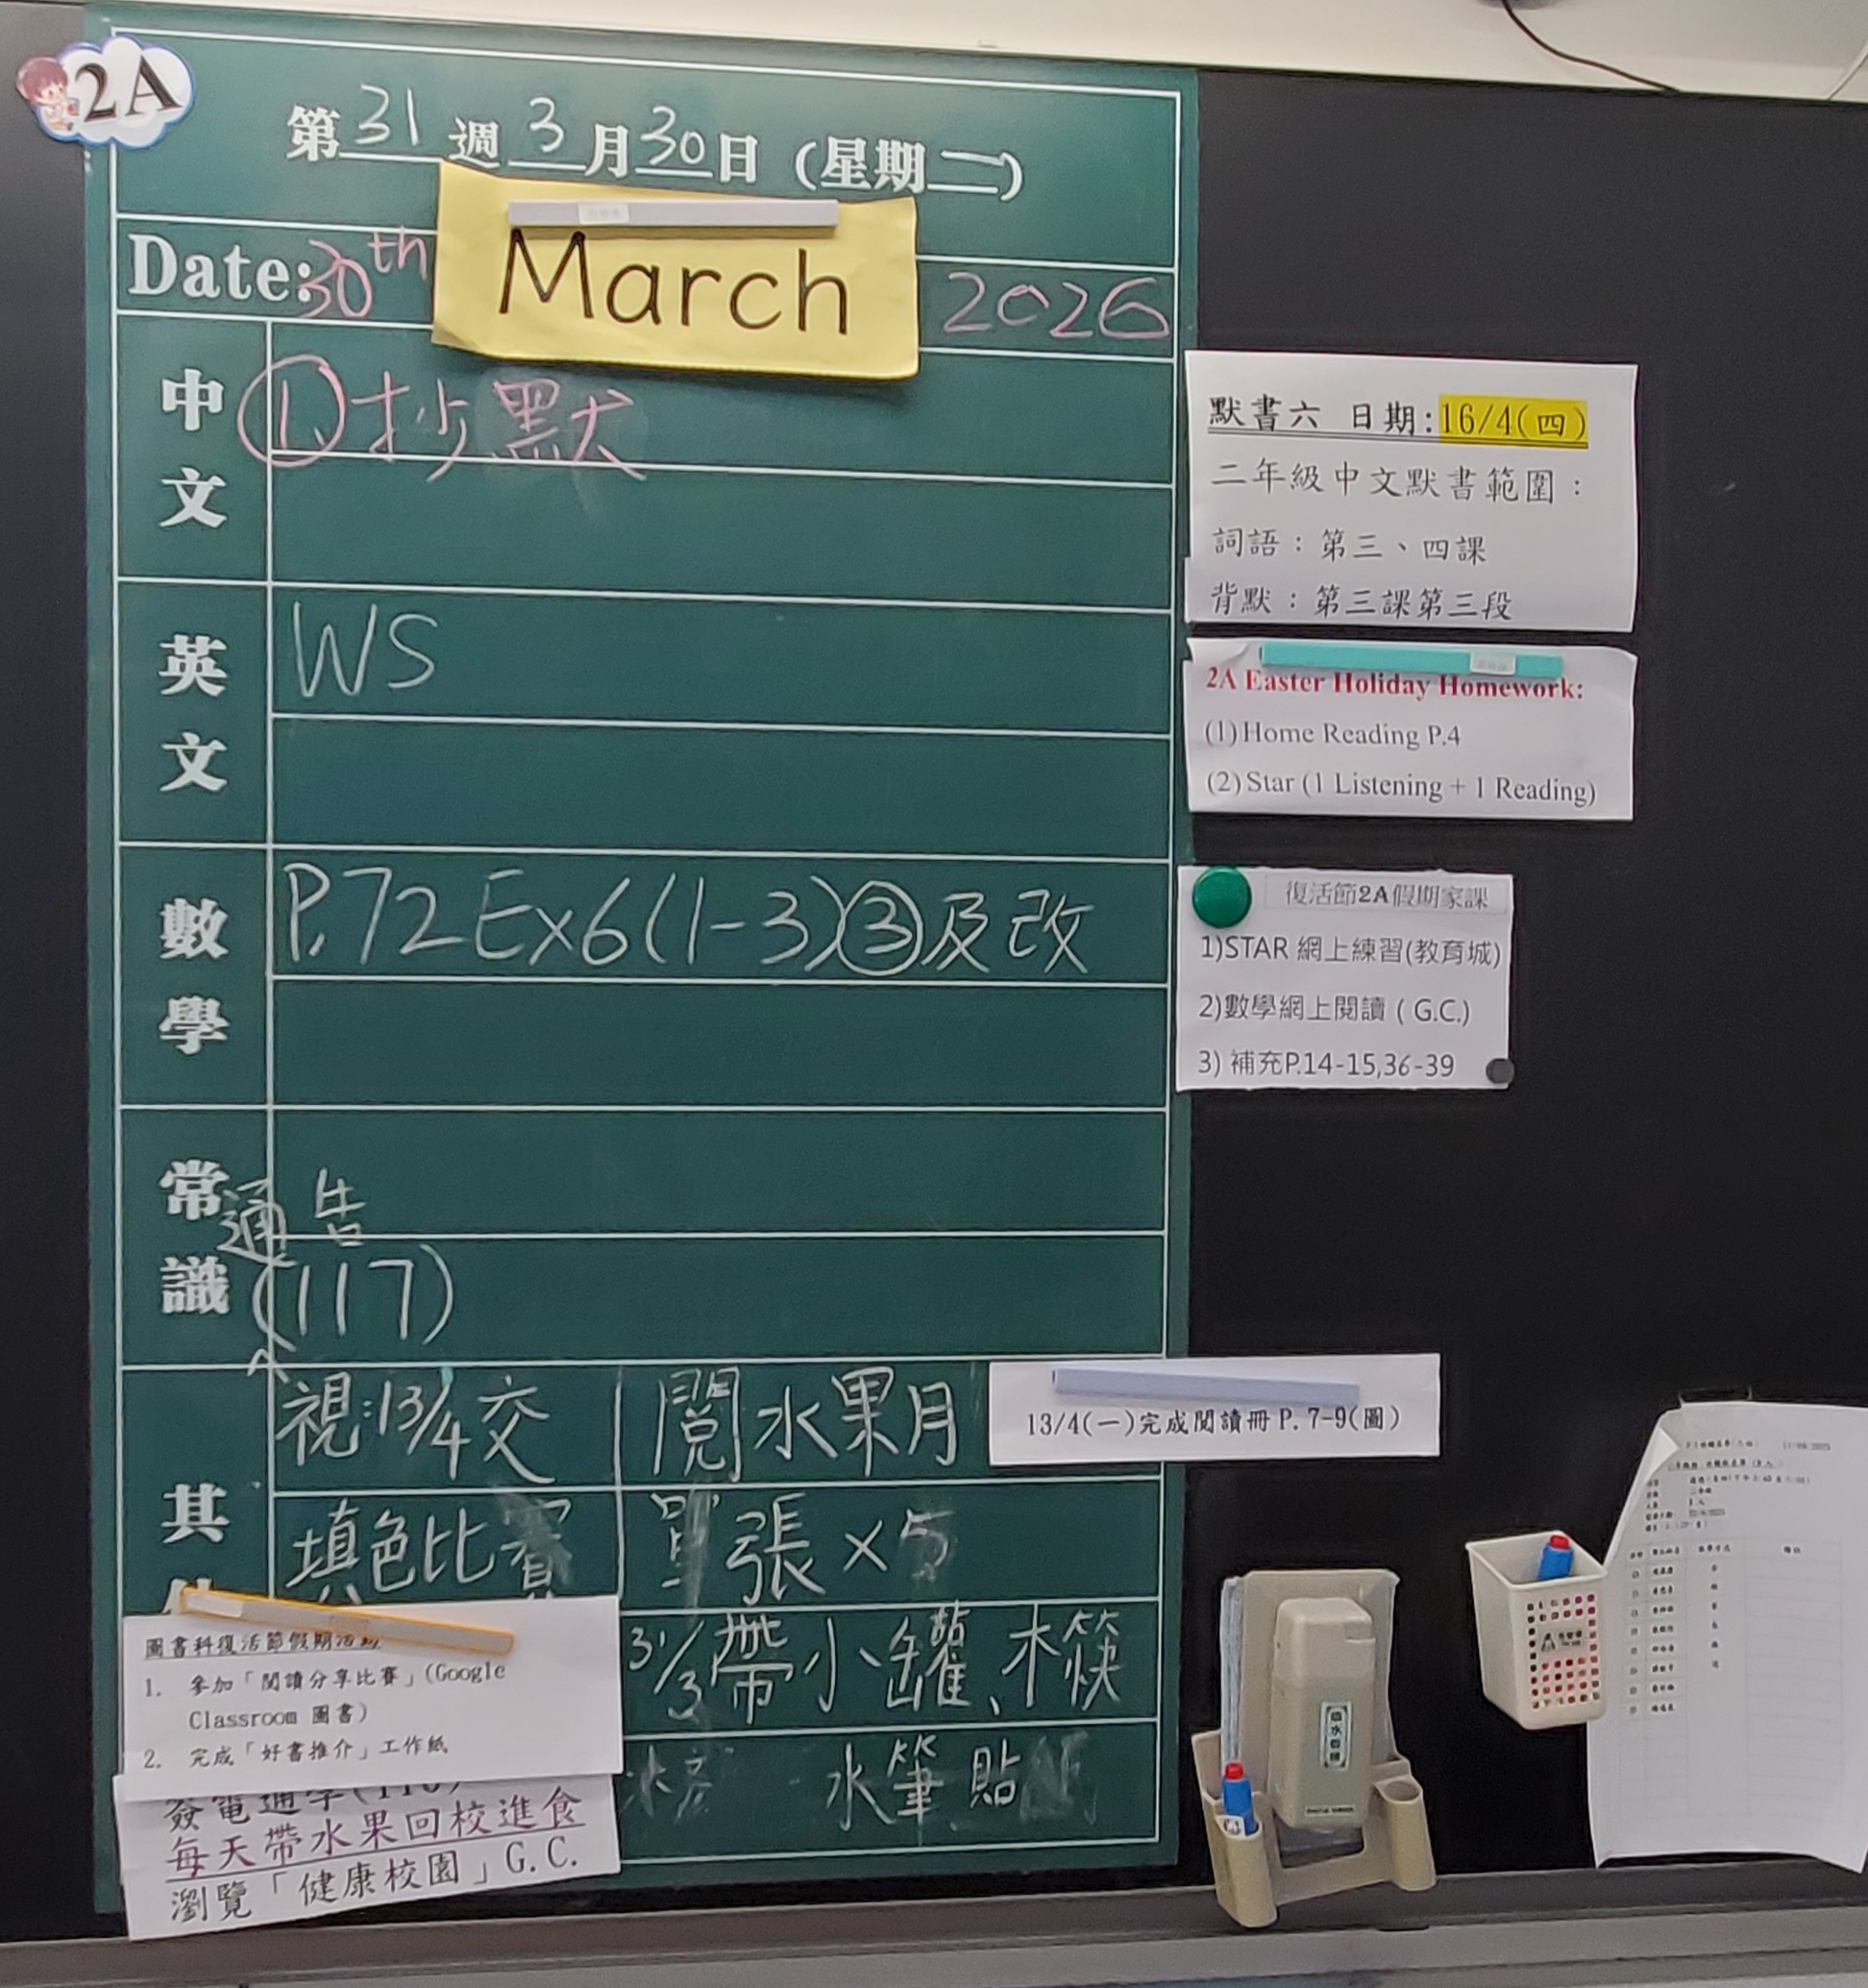 2A
第31週3月30日(星期二)
Date:30th March 2026
中文
①抄默
英文
WS
數學
P.72 Ex6(1-3)③及改
常識
通告
(117)
其
視:13/4交
閱水果月
13/4(一)完成閱讀冊 P.7-9(圖)
填色比賽
單張×5
31/3帶小罐、木筷
水筆 貼
圖書科復活節假期活動
1. 參加「閱讀分享比賽」(Google
Classroom 圖書)
2. 完成「好書推介」工作紙
每天帶水果回校進食
瀏覽「健康校園」G.C.
默書六 日期:16/4(四)
二年級中文默書範圍：
詞語：第三、四課
背默：第三課第三段
2A Easter Holiday Homework:
(1) Home Reading P.4
(2) Star (1 Listening + 1 Reading)
復活節2A假期家課
1)STAR 網上練習(教育城)
2)數學網上閱讀 ( G.C.)
3) 補充P.14-15,36-39